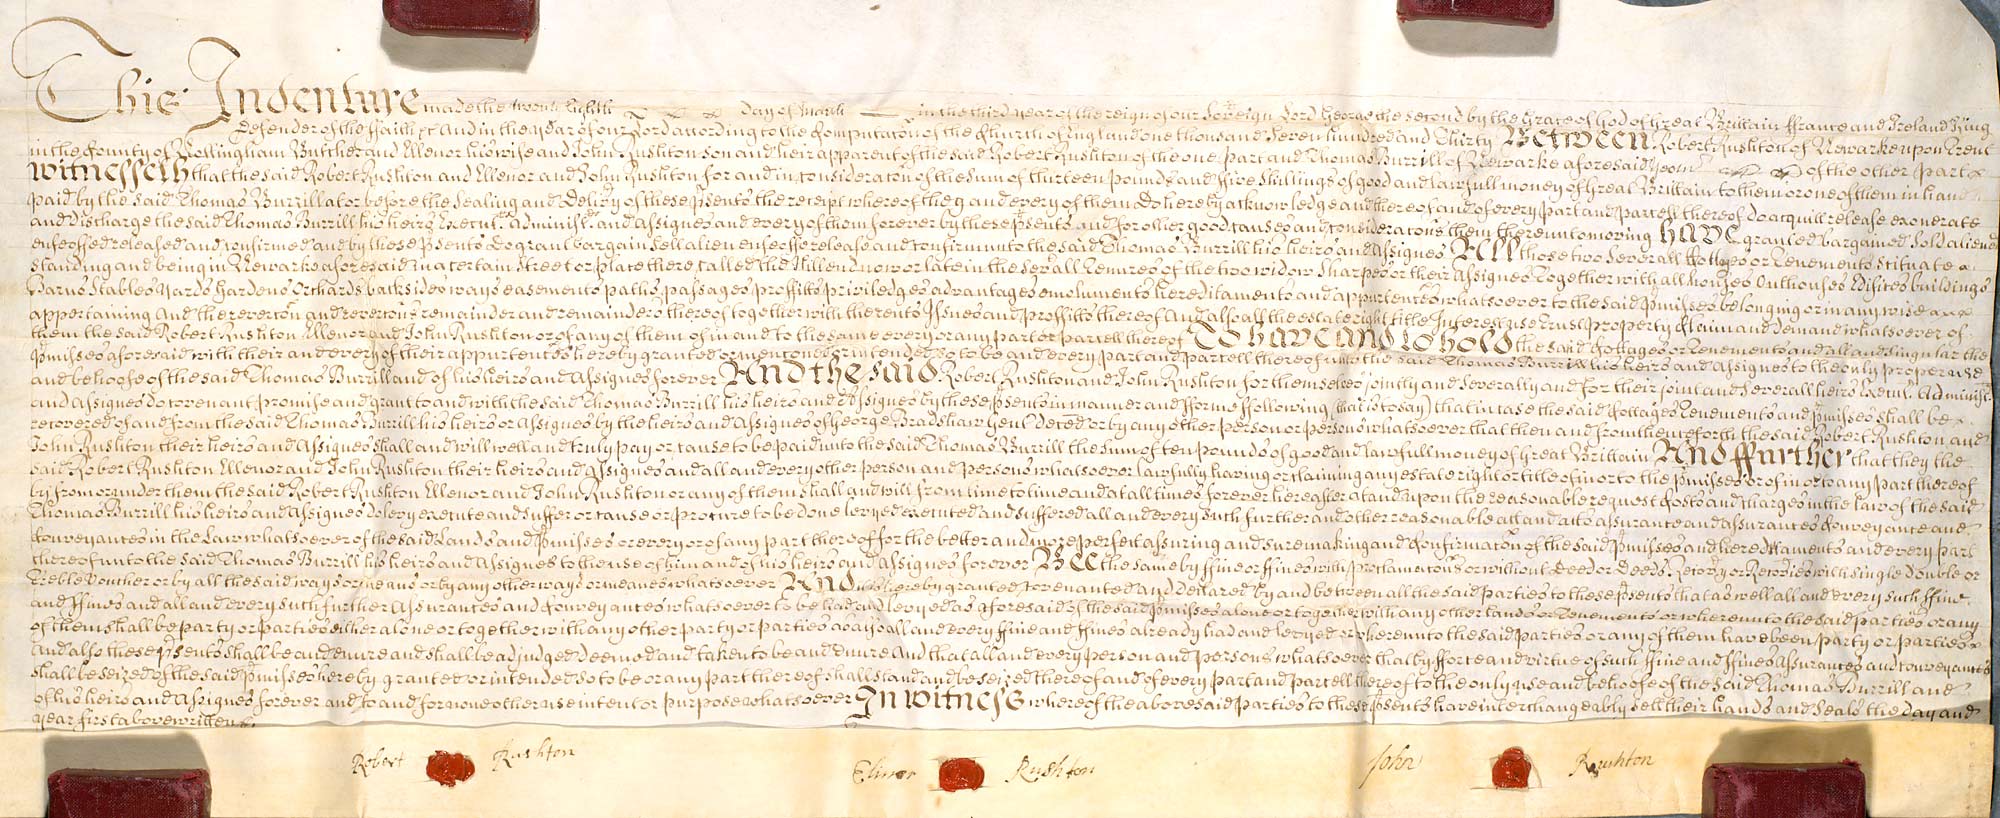 This Indenture made the twenty Eighth day of March in the third year of the reign of our Sovereign Lord George the second by the Grace of God of Great Brittain ffrance and Ireland King
Defender of the ffaith &c And in the year of our Lord according to the Computacon of the Church of England one thousand Seven hundred and Thirty Between Robert Rushton of Newarke upon Trent
in the County of Nottingham Butcher and Ellenor his wife and John Rushton son and heir apparent of the said Robert Rushton of the one part and Thomas Burrill of Newarke aforesaid yeom of the other part
Witnesseth that the said Robert Rushton and Ellenor and John Rushton for and in consideracon of the sum of thirteen pounds and ffive shillings of good and lawfull money of Great Brittain to them or one of them in hand
paid by the said Thomas Burrill at or before the Sealing and Delivy of these psents the receipt whereof they and every of them do hereby acknowledge and thereof and of every part and parcell thereof do acquitt release exonerate
and discharge the said Thomas Burrill his heirs Execut Administ and assignes and every of them forever by these psents and for other good causes and consideracons them thereunto moving Have granted bargained Sold aliened
enfeoffed released and confirmed and by these psents do grant bargain sell alien enfeoffe release and confirm unto the said Thomas Burrill his heirs and assignes All those two Severall Cottages or Tenements Scituate
standing and being in Newarke aforesaid in a certain Street or place there called the Millend now or late in the sevall Tenures of the two widow Sharpes or their Assignes Together with all houses Outhouses Edifices buildings
Barns Stables Yards Gardens Orchards backsides ways easements paths passages proffitts priviledges advantages emoluments hereditaments and appurtences whatsoever to the said pmisses belonging or in any wise
appertaining And the revercon and revercons remainder and remainders thereof together with the rents Issues and proffitts thereof And also all the estate right title Interest use trust property Claim and demand whatsoever of
them the said Robert Rushton Ellenor and John Rushton or of any of them of in and to the same every or any part or parcell thereof To have and to hold the said Cottages or Tenements and all and Singular the
pmisses aforesaid with their and every of their appurtences hereby granted or menconed or intended so to be and every part and parcell thereof unto the said Thomas Burrill his heirs and assignes to the only proper use
and behoofe of the said Thomas Burrill and of his heirs and Assignes forever And the said Robert Rushton and John Rushton for themselves joyntly and Severally and for their joint and Severall heirs Execut Administ
and assignes do covenant promise and grant to and with the said Thomas Burrill his heirs and Assignes by these psents in manner and fforme ffollowing (that is to say) that in case the said Cottages Tenements and pmisses shall be
recovered of and from the said Thomas Burrill his heirs or Assignes by the heirs and assignes of George Bradshaw Gent Deced or by any other person or persons whatsoever that then and from thenceforth the said Robert Rushton and
John Rushton their heirs and Assignes shall and will well and truly pay or cause to be paid unto the said Thomas Burrill the sum of ten pounds of good and lawfull money of Great Brittain And ffurther that they the
said Robert Rushton Ellenor and John Rushton their heirs and Assignes and all and every other person and persons whatsoever lawfully having or claiming any estate right or title of in or to the pmisses or of in or to any part thereof
by from or under them the said Robert Rushton Ellenor and John Rushton or any of them shall and will from time to time and at all times forever hereafter at and upon the reasonable request Costs and charges in the law of the said
Thomas Burrill his heirs and Assignes do levy execute and suffer or cause or procure to be done levyed executed and suffered all and every such further and other reasonable act and acts assurance and assurances Conveyance and
Conveyances in the Law whatsoever of the said Lands and pmisses or every or of any part thereof for the better and more perfect assuring and suremaking and Confirmacon of the said pmisses and hereditaments and every part
thereof unto the said Thomas Burrill his heirs and Assignes to the use of him and of his heirs and assignes forever Bee the same by ffine or ffines with proclamacons or without Deed or Deeds Recovry or Recovries with Single double or
Treble voucher or by all the said ways or means or by any other ways or meanes whatsoever And it is hereby granted covenanted and declared by and between all the said parties to these psents that as well all and every such ffine
and ffines and all and every such further Assurances and Conveyances whatsoever to be had and levyed as aforesaid of the said pmisses alone or together with any other lands or Tenements or whereunto the said parties or any
of them shall be party or parties either alone or together with any other party or parties as also all and every ffine and ffines already had and levyed or whereunto the said parties or any of them have been party or parties
and also these psents shall be and enure and shall be adjudged deemed and taken to be and enure And that all and every person and persons whatsoever that by fforce and virtue of such ffine and ffines Assurances and conveyances
shall be seized of the said pmisses hereby granted or intended so to be or any part thereof shall stand and be seized thereof and of every part and parcell thereof to the only use and behoofe of the said Thomas Burrill and
of his heirs and Assignes forever and to and for none other use intent or purpose whatsoever In witness whereof the abovesaid parties to these psents have interchangeably sett their hands and Seals the day and
year first above written
Robert Rushton Elinor Rushton John Rushton